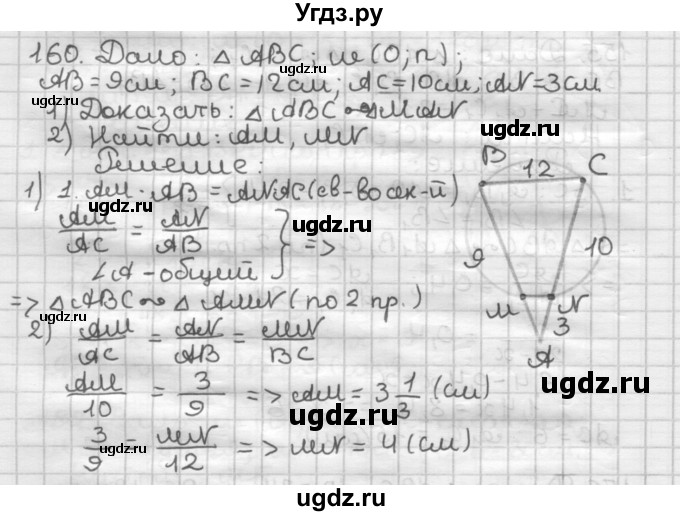 Угдз.ру
160. Дано: △ ABC; w (O; r);
AB = 9см; BC = 12см; AC = 10см; AN = 3см
1) Доказать: △ ABC ~ △ MAN
2) Найти: AM, MN
Решение:
1) 1. AM · AB = AN AC (св-во сек-й)
AM/AC = AN/AB
∠A - общий } =>
=> △ ABC ~ △ AMN (по 2 пр.)
2) AM/AC = AN/AB = MN/BC
AM/10 = 3/9 => AM = 3 1/3 (см)
3/9 = MN/12 => MN = 4 (см)
B 12 C
9 10
M N
3
A
ugdz.ru
ugdz.ru
ugdz.ru
ugdz.ru
ugdz.ru
ugdz.ru
ugdz.ru
ugdz.ru
ugdz.ru
ugdz.ru
ugdz.ru
ugdz.ru
ugdz.ru
ugdz.ru